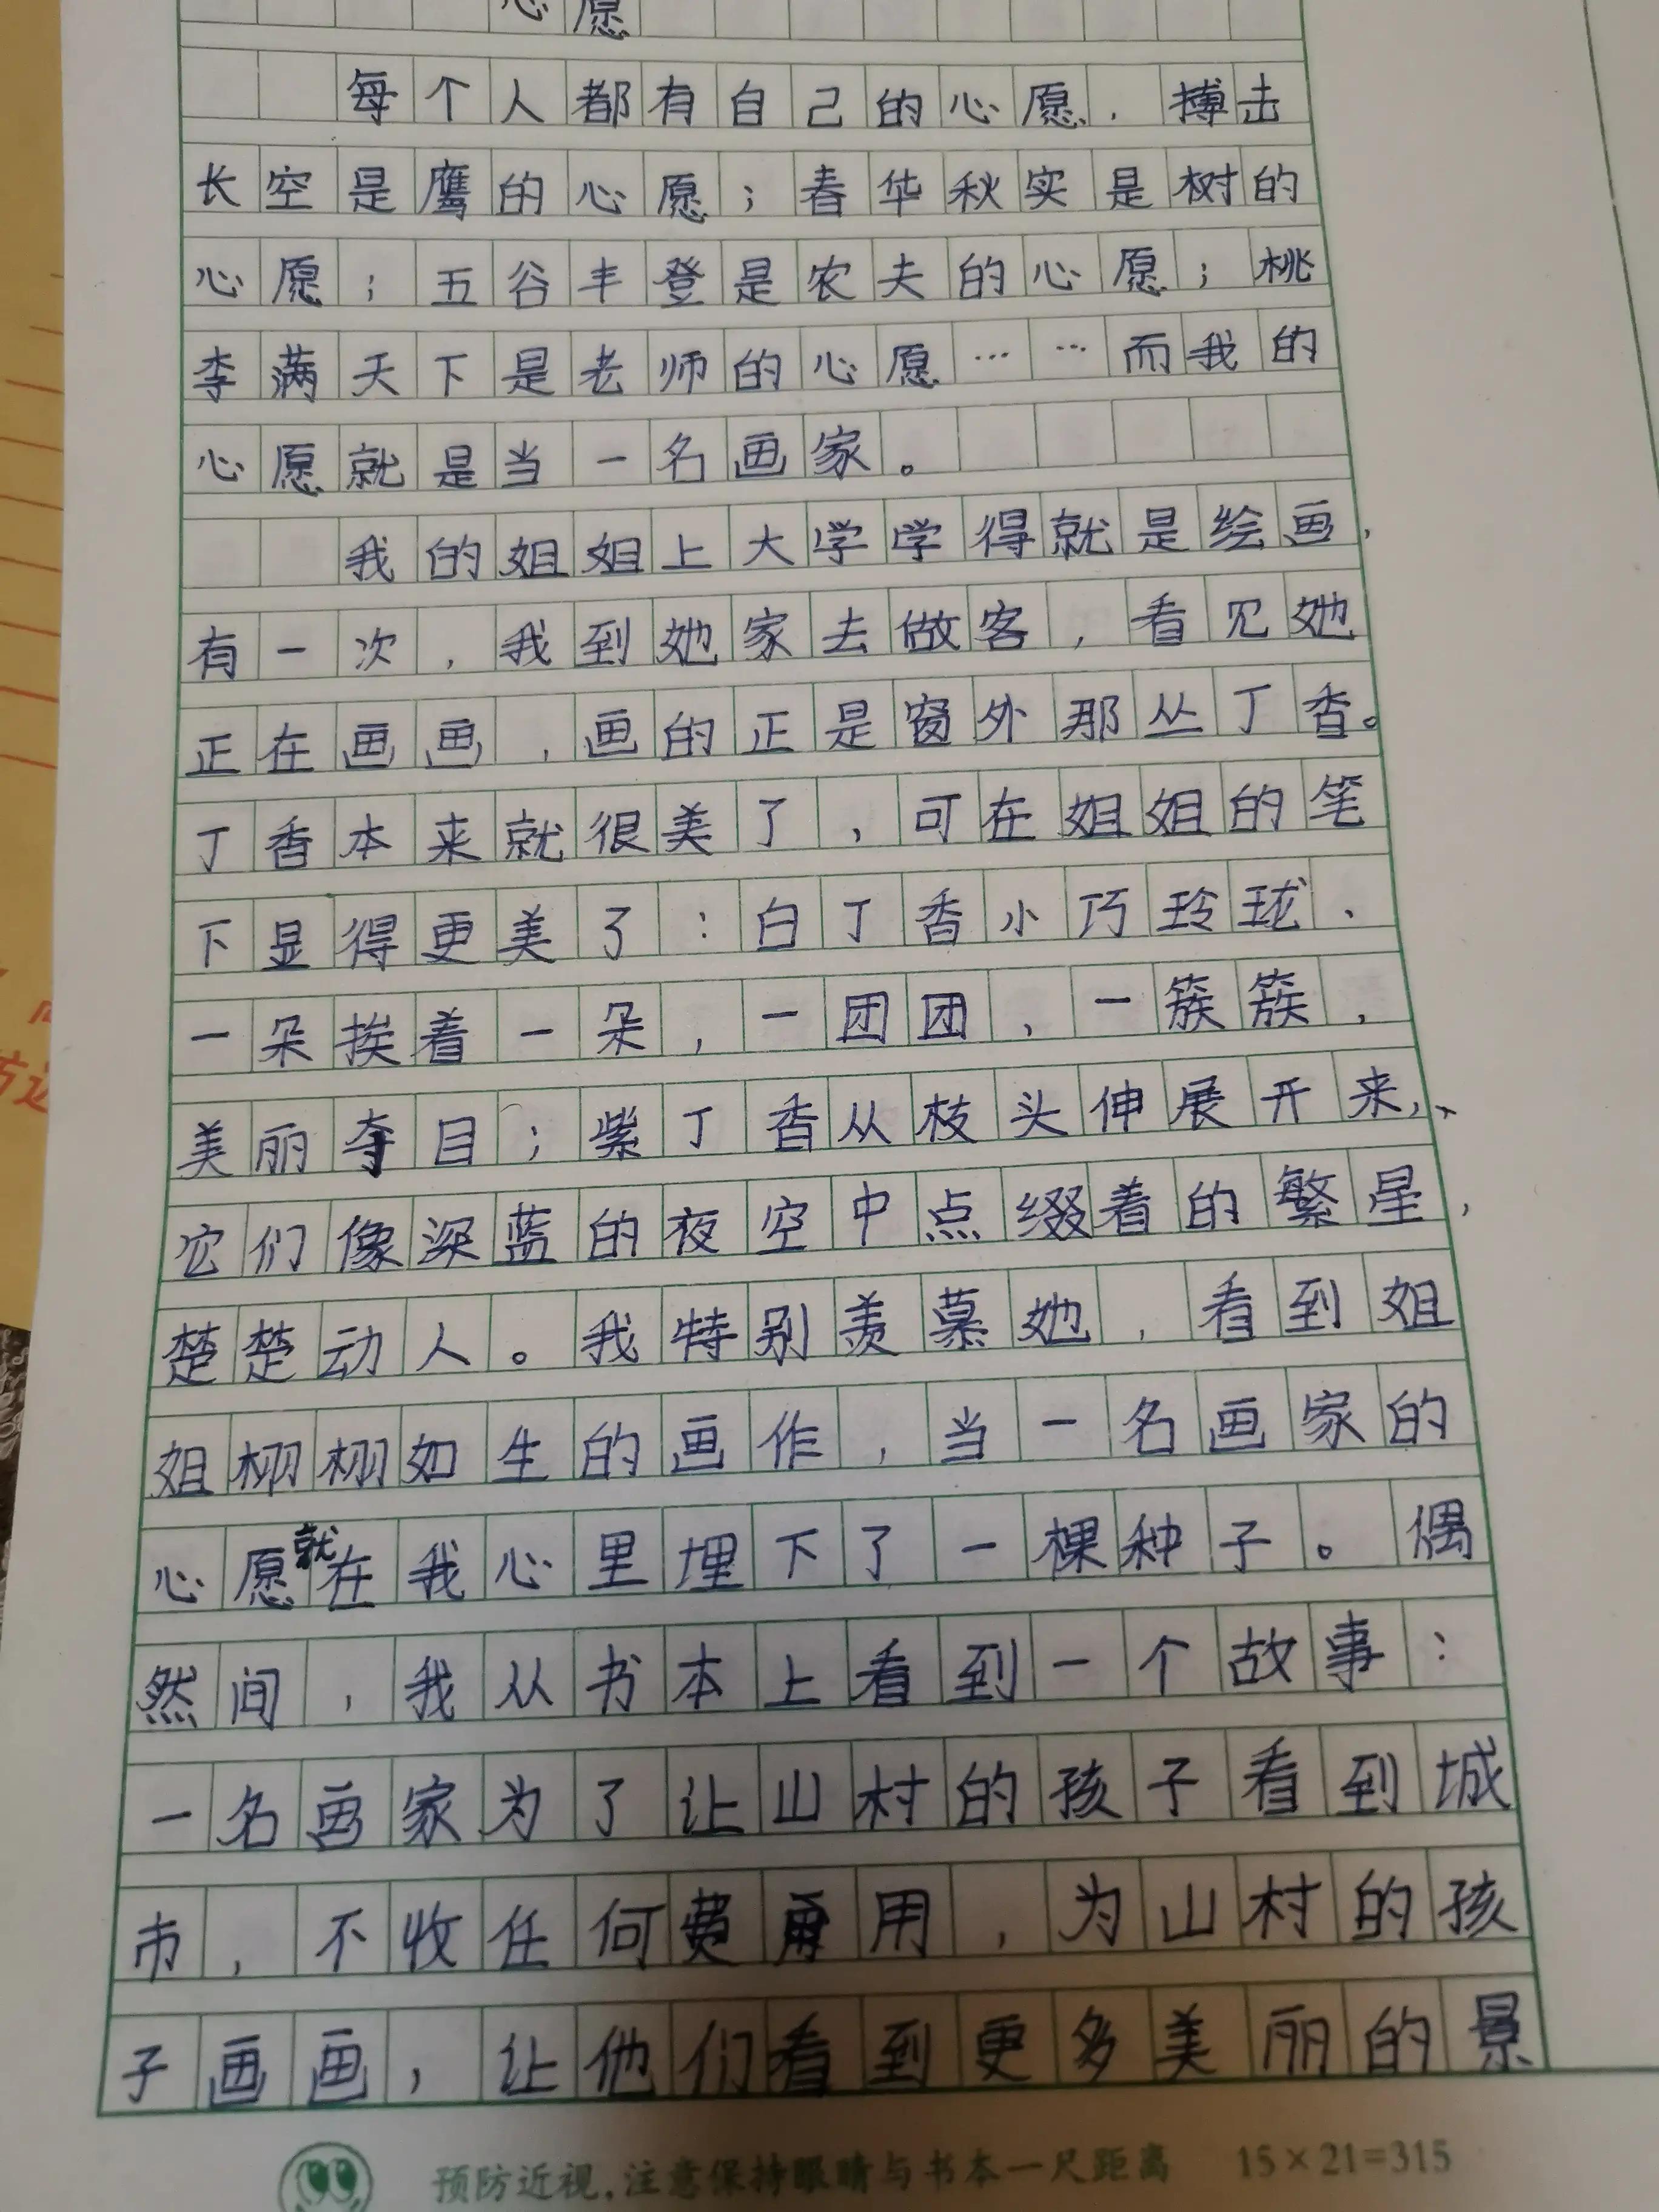 心愿
每个人都有自己的心愿，搏击
长空是鹰的心愿；春华秋实是树的
心愿；五谷丰登是农夫的心愿；桃
李满天下是老师的心愿……而我的
心愿就是当一名画家。
我的姐姐上大学学得就是绘画，
有一次，我到她家去做客，看见她
正在画画，画的正是窗外那丛丁香。
丁香本来就很美了，可在姐姐的笔
下显得更美了：白丁香小巧玲珑、
一朵挨着一朵，一团团，一簇簇，
美丽夺目；紫丁香从枝头伸展开来，
它们像深蓝的夜空中点缀着的繁星，
楚楚动人。我特别羡慕她，看到姐
姐栩栩如生的画作，当一名画家的
心愿就在我心里埋下了一棵种子。偶
然间，我从书本上看到一个故事：
一名画家为了让山村的孩子看到城
市，不收任何费用，为山村的孩
子画画，让他们看到更多美丽的景
预防近视，注意保持眼睛与书本一尺距离 15×21=315